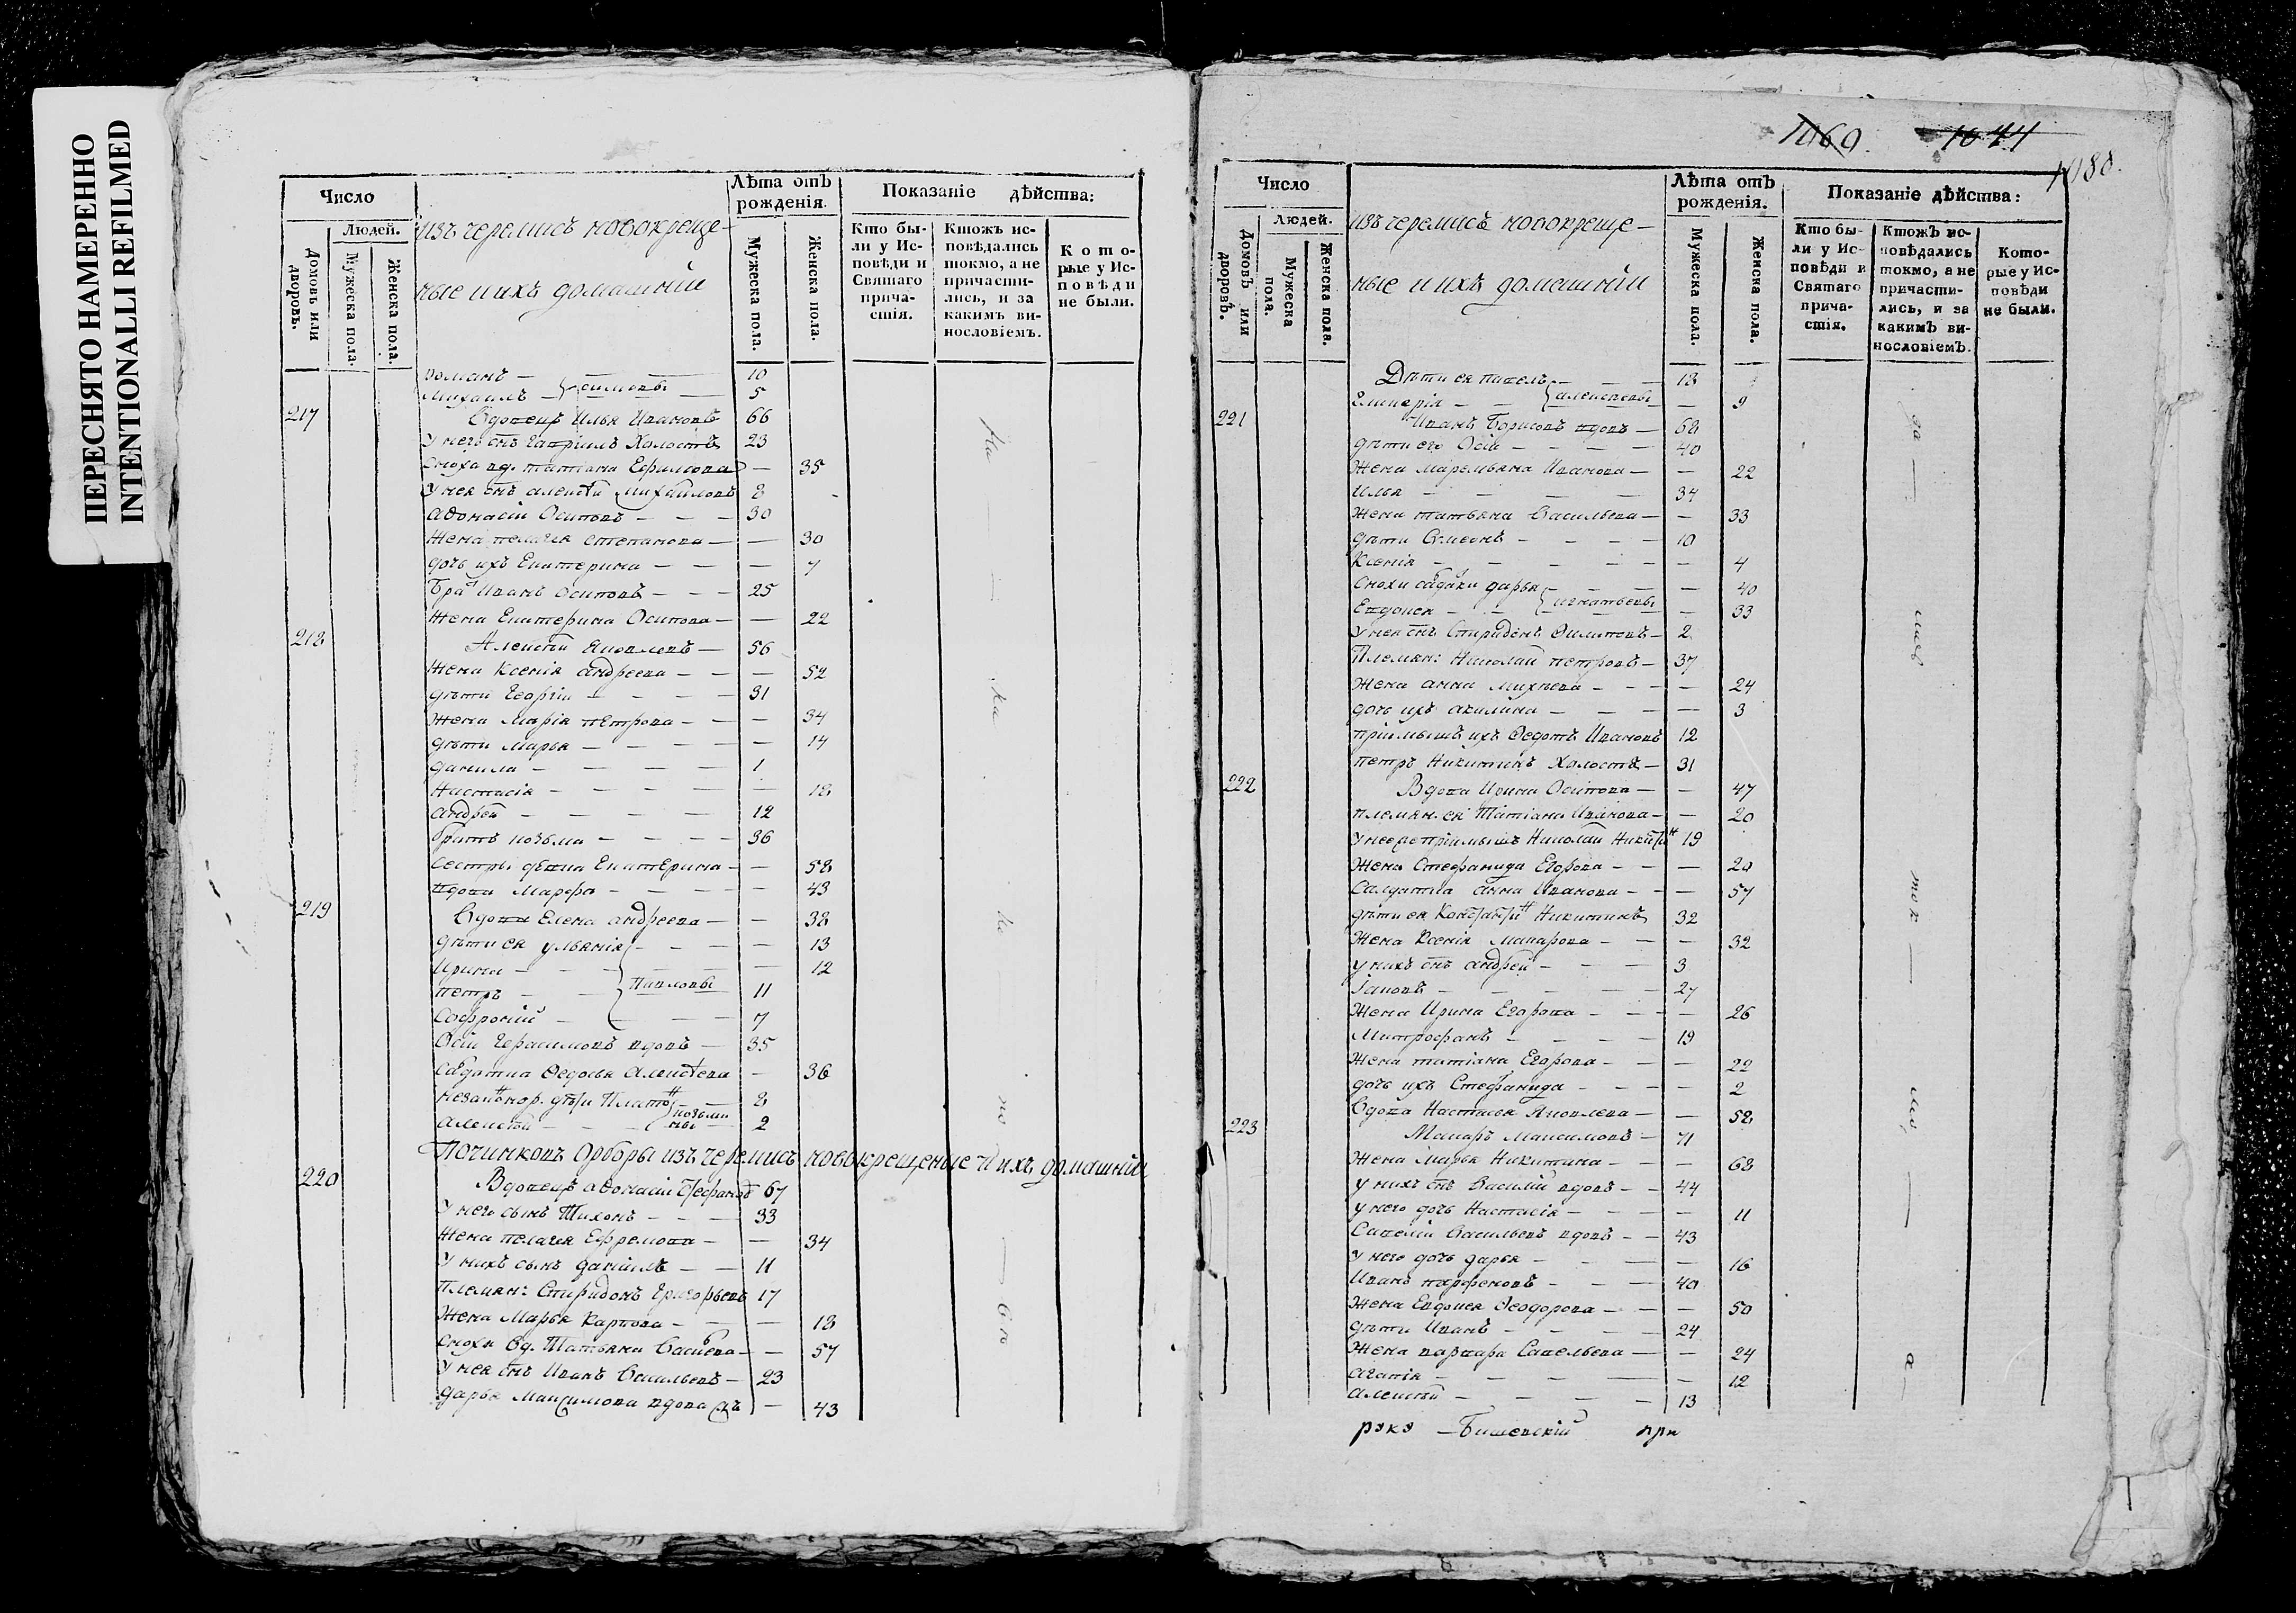 ПЕРЕСНЯТО НАМЕРЕННО
INTENTIONALLI REFILMED
Число
Людей.
Домовъ или дворовъ.
Мужеска пола.
Женска пола.
изъ черемисъ новокреще-
ные и ихъ домашнiи
Лѣта отъ рожденiя.
Мужеска пола.
Женска пола.
Показанiе дѣйства:
Кто бы-
ли у Ис-
повѣди и
Святаго
прича-
стiя.
Ктожъ ис-
повѣдались
токмо, а не
причасти-
лись, и за
какимъ ви-
нословiемъ.
Кото-
рые у Ис-
повѣди
не были.
романъ — 10
михаилъ — 5
217 Вдовецъ Илья Ивановъ 66
у него снъ гаврiилъ Холостъ 23
сноха вд. татiана Ефимова — 35
у нея снъ алексѣй михайловъ 8
афонасiй Осиповъ — 30
жена пелагея степанова — 30
дочь ихъ Екатерина — 7
братъ Иванъ Осиповъ — 25
жена Екатерина Осипова — 22
218 Алексѣй Яковлевъ — 56
жена ксенiя андреева — 52
дѣти георгiй — 31
жена марiя петрова — 34
дѣти марья — 14
данила — 1
настасiя — 18
андрей — 12
братъ козьма — 36
сестры дѣвка Екатерина — 58
вдова марфа — 43
219 Вдова Елена андреева — 38
дѣти ея ульянiя — 13
ирина — 12
петръ — Павловы 11
софронiй — 7
Осiй герасимовъ вдовъ — 35
солдатка федосья алексѣева — 36
незаконор. дѣти Платонъ — 8
алексѣй — козьмины 2
Починковъ Орборы изъ черемисъ новокрещеные и ихъ домашнiи
220 Вдовецъ афонасiй 67
у него сынъ Тихонъ — 33
жена пелагея Ефремова — 34
у нихъ сынъ данiилъ — 11
племян: Спиридонъ григорьевъ 17
жена марья карпова — 18
сноха вд. Татьяна — 57
у нея снъ Иванъ Васильевъ — 23
дарья максимова вдова — 43
1069. 1044
1088.
Число
Людей.
Домовъ или дворовъ.
Мужеска пола.
Женска пола.
изъ черемисъ новокреще-
ные и ихъ домашнiи
Лѣта отъ рожденiя.
Мужеска пола.
Женска пола.
Показанiе дѣйства:
Кто бы-
ли у Ис-
повѣди и
Святаго
прича-
стiя.
Ктожъ ис-
повѣдались
токмо, а не
причасти-
лись, и за
какимъ ви-
нословiемъ.
Кото-
рые у Ис-
повѣди
не были.
Дѣти ея павелъ — 18
— алексѣевы — 9
221 Иванъ Борисовъ вдовъ — 68
дѣти его Осiй — 40
жена Иванова — 22
илья — 34
жена татьяна Васильева — 33
дѣти Симеонъ — 10
ксенiя — 4
снохи солдатки дарья — 40
Евдокея — игнатьевы — 33
у нея снъ Спиридонъ Филиповъ — 2
Племян: Николай петровъ — 37
жена анна михѣева — 24
дочь ихъ акилина — 3
прiимышъ ихъ Федотъ Ивановъ 12
петръ Никитинъ Холостъ — 31
222 Вдова Ирина Осипова — 47
племян. ея Татiана Иванова — 20
у нее прiимышъ Николай Никитинъ 19
жена Стефанида Егорова — 20
Салдатка анна Иванова — 57
дѣти ея Никитинъ 32
жена ксенiя макарова — 32
у нихъ снъ андрей — 3
Iаковъ — 27
жена ирина Егорова — 26
митрофанъ — 19
жена татiана Егорова — 22
дочь ихъ Стефанида — 2
Вдова Настасья Яковлева — 58
223 Макаръ максимовъ — 71
жена марья никитина — 68
у нихъ снъ Василiй вдовъ — 44
у него дочь Настасiя — 11
Савелiй Васильевъ вдовъ — 43
у него дочь дарья — 16
Иванъ парфеновъ — 40
жена Евдокея Феодорова — 50
дѣти Иванъ — 24
жена варвара Савельева — 24
агапiя — 12
алексѣй — 13